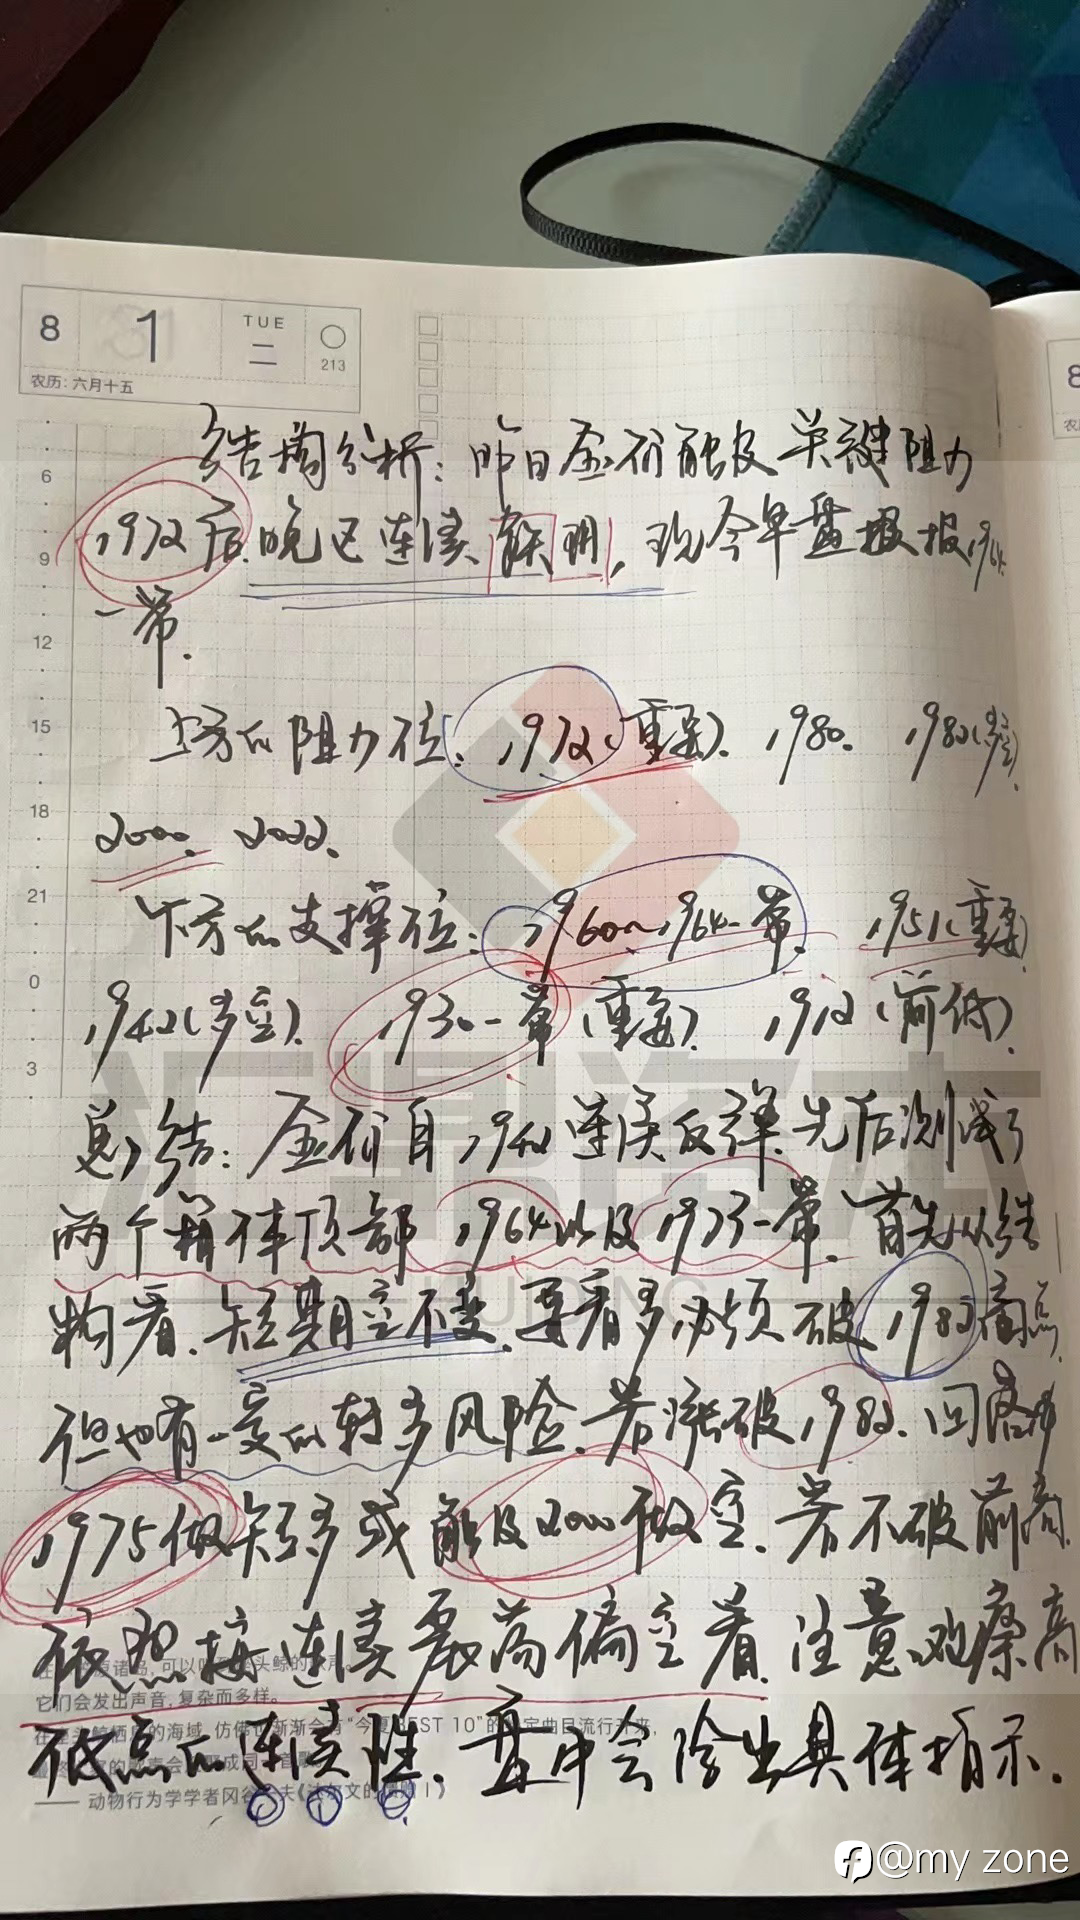 8 1 TUE 二 213
农历: 六月十五
结构分析: 昨日金价触及关键阻力
1972后, 晚已连续 现今早盘报报1964
一带.
上方的阻力位: 1972(重要). 1980. 1982(多空)
2000. 2022.
下方的支撑位: 1960~1964一带. 1951(重要)
1942(多空). 1930一带(重要). 1912(前低).
总结: 金价自1942连续反弹. 先后测试了
两个箱体顶部 1964以及1973一带. 首先从结
构看. 短期空不变. 要看多必须破1982高点.
但也有一定的转多风险. 若涨破1982. 回落
1975做短多或触及2000做空. 若不破前高
依然按连续震荡偏空看. 注意观察高
低点的连续性. 盘中会给出具体指示.
6
9
12
15
18
21
0
3
汇鼎资本
HUIDING
它们会发出声音, 复杂而多样。
@my zone